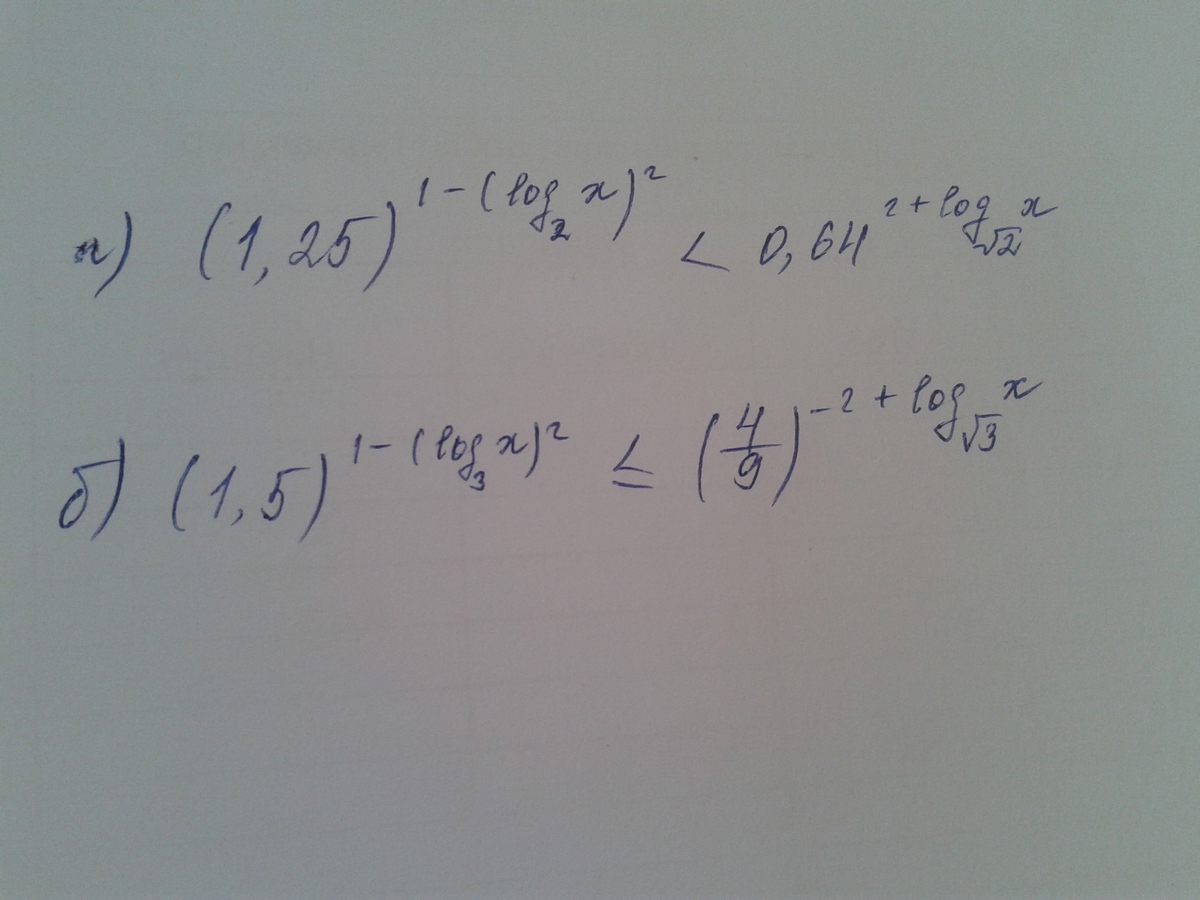 а) (1,25)^{1-(log_2 x)^2} < 0,64^{2+log_{√2} x}
б) (1,5)^{1-(log_3 x)^2} ≤ (4/9)^{-2+log_{√3} x}